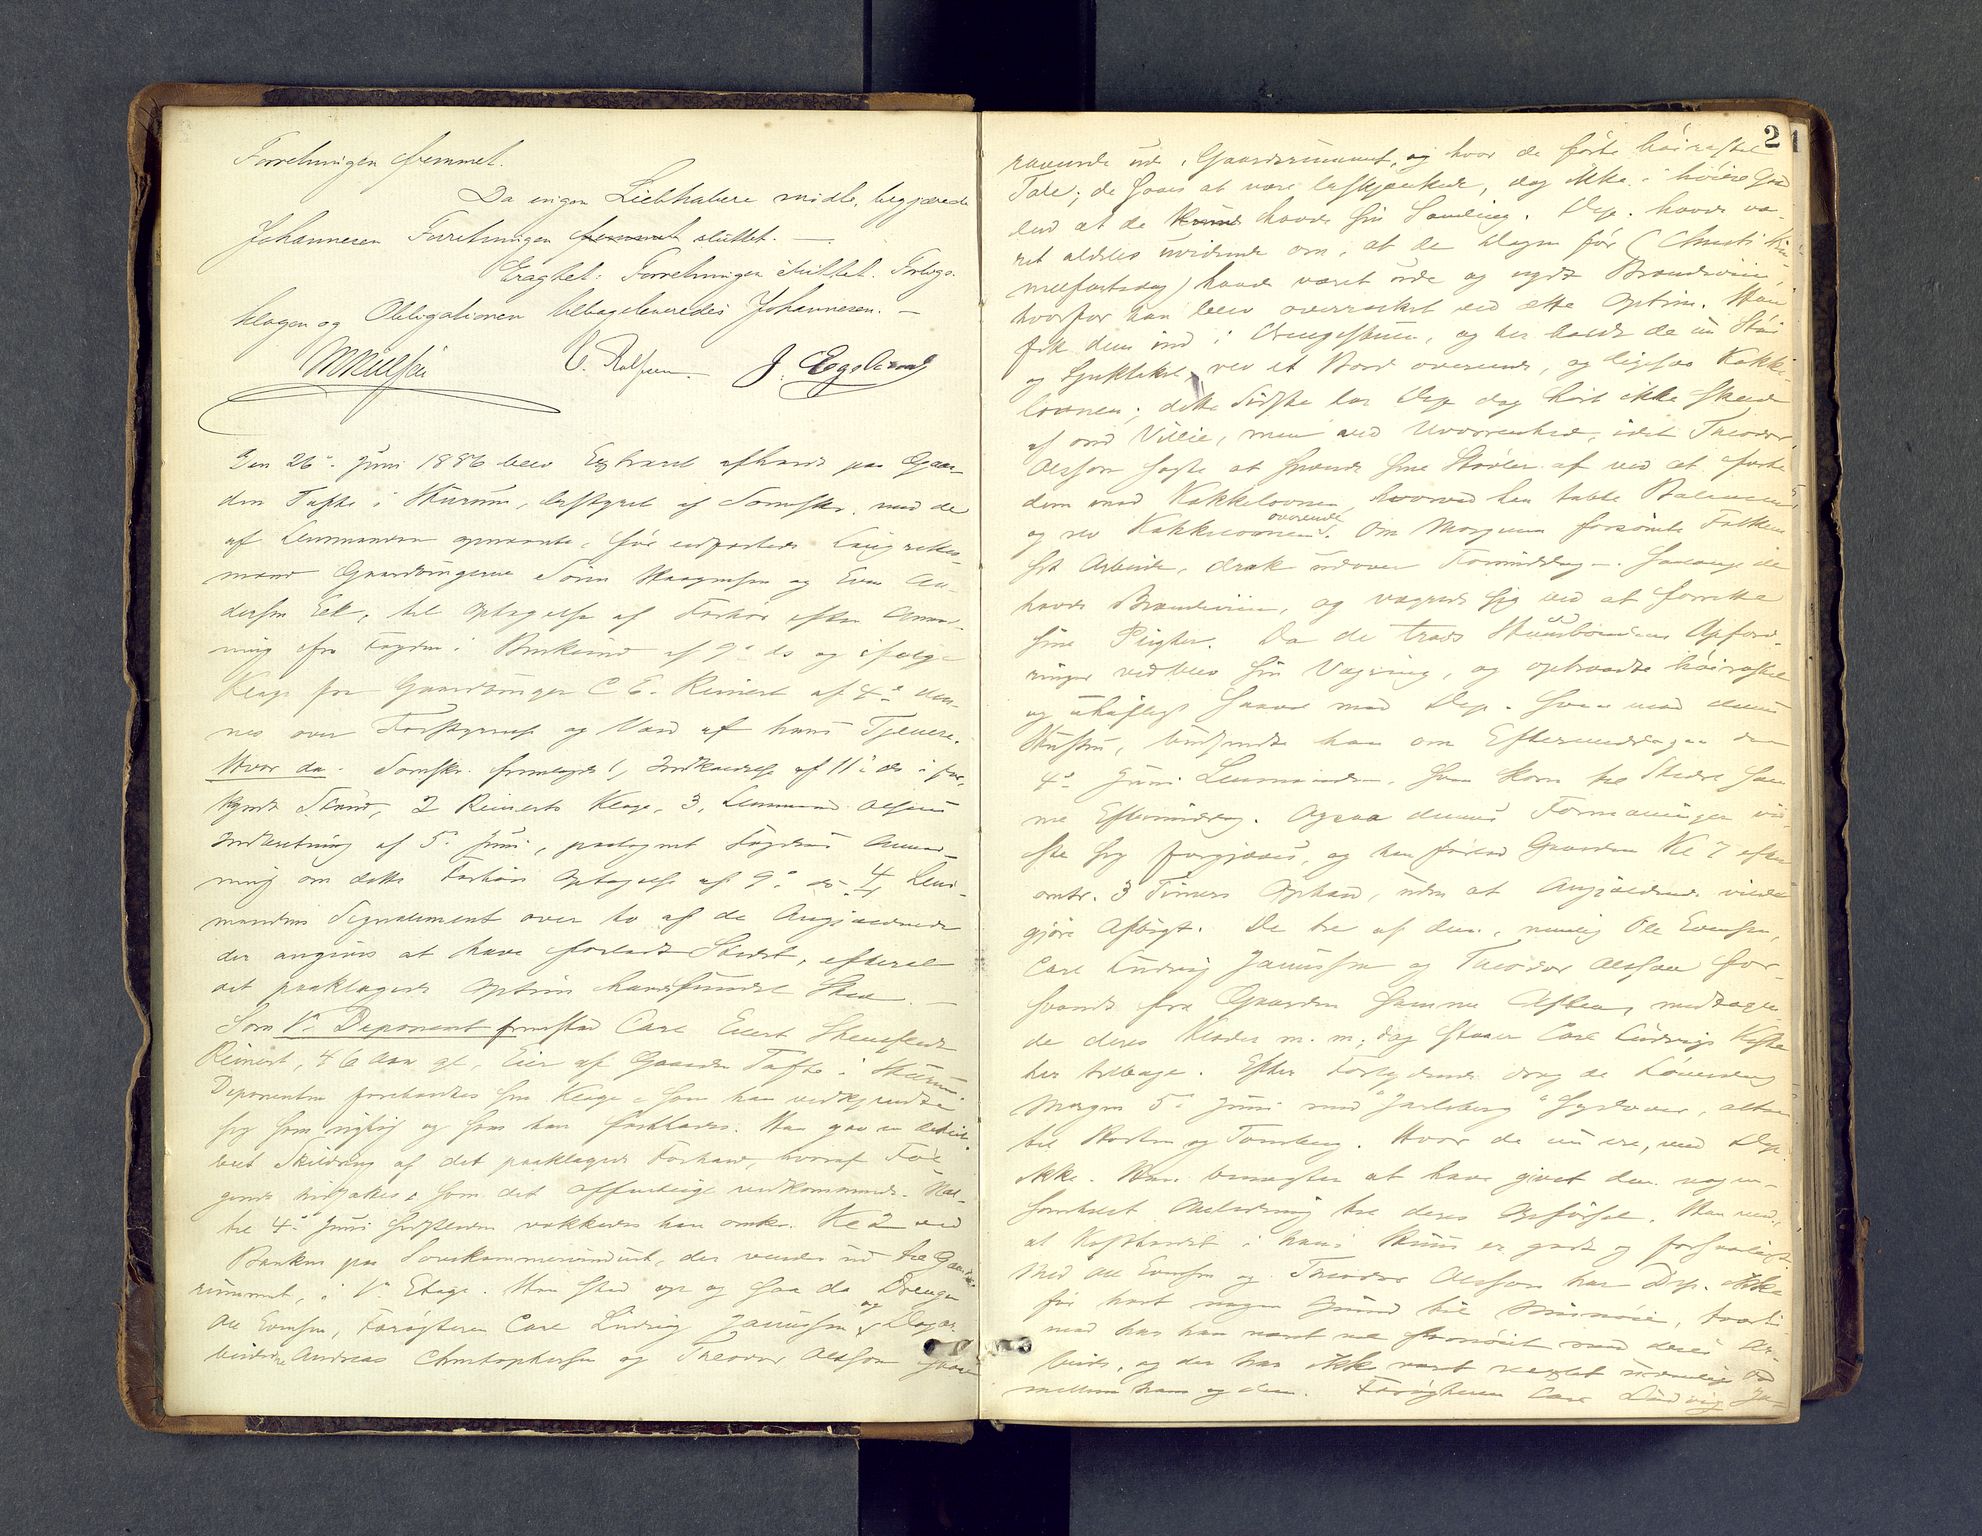 Forretningen fremmet.
Da ingen Liebhabere meldte, begjærede
Johannesen Forretningen fremmet sluttet. —
Eragtet: Forretningen sluttet. Forligs-
klagen og Obligationen tilbageleveredes Johannesen. —
J. Egeland
Den 26de Juni 1886 blev Extraret afholdt paa Gaar-
den Tofte i Hurum, bestyret af Sorenskr. med de
af Lensmanden opnævnte, før edfæstede Laugrettes-
mænd Gaardbrugerne Søren Haagensen og Even An-
dersen Eek, til Optagelse af Forhør efter Anmod-
ning fra Fogden i Buskerud af 9de ds og ifølge
Klage fra Gaardbruger C. E. Reinert af 4de den-
nes over Forstyrrelse og Vold af hans Tjenere.
Hvor da Sorenskr. fremlagde 1, Indkaldelse af 11te ds i for-
kyndt Stand, 2 Reinerts Klage, 3, Lensmand Olsens
Indberetning af 5te Juni, paategnet Fogdens Anmod-
ning om dette Forhørs Optagelse af 9de ds 4, Lens-
mandens Signalement over to af de Angjældende
der angives at have forladt Stedet, efterat
det paaklagede Optrin havde fundet Sted. —
Som 1ste Deponent fremstod Carl Evert
Reinert, 46 Aar gl., Eier af Gaarden Tofte i Hurum.
Deponenten foreholdtes sin Klage som han vedkjendte
sig som rigtig og som han forklarer. Han gav en detail-
leret Skildring af det paaklagede Forhold, hvoraf Føl-
gende hidsættes som det offentlige vedkommende. Nat-
til 4de Juni sidstleden vækkedes han omtr. Kl 2 ved
Banken paa Sovekammervinduet, der vender ud til Gaards-
rummet, i 1ste Etage. Han stod op og saa da Drengen
Ole Evensen, Forøgteren Carl Ludvig Janussen og Dagar-
beiderne Andreas Christophersen og Theodor Olsson
2
ravende ude i Gaardsrummet, og hvor de førte høirøstet
Tale; de saaes at være beskjænkede, dog ikke i høiere Grad
end at de kunde havde sin Samling. Dep. havde væ-
ret aldeles uvidende om, at de Dagen før (Christi Him-
melfartsdag) havde været ude og nydt Brændeviin,
hvorfor han blev overrasket ved dette Optrin. Han
fik dem ind i Drengestuen, og her holdt de nu Støi
og Spektakel, rev et Bord overende, og ligesaa Kakke-
lovnen; dette Sidste har Dep. dog hørt ikke skede
af ond Villie, men ved Uvorrenhed, idet Theodor
Olsson søgte at sparke sine Støvler af ved at
dem mod Kakkelovnen, hvorved han tabte Balancen
og rev Kakkelovnen overende. Om Morgenen forsømte Folkene
sit Arbeide, drak udover Formiddagen saalænge de
havde Brændeviin, og vægrede sig ved at forrette
sine Pligter. Da de trods Huusbondens Opford-
ringer vedblev sin Vægring, og optraadte høirøstet
og uhøfligt saavel mod Dep. som mod dennes
Hustru, budsendte han om Eftermiddagen den
4de Juni Lensmanden, som kom til Stede sam-
me Eftermiddag. Ogsaa dennes Formaninger vi-
ste sig forgjæves, og han forlod Gaarden Kl 7 efter
omtr. 3 Timers Ophold, uden at Angjældende vilde
gjøre Afbigt. De tre af dem, nemlig Ole Evensen,
Carl Ludvig Janussen og Theodor Olsson for-
svandt fra Gaarden samme Aften, medtagen-
de deres Klæder m. m; dog staaer Carl Ludvigs Kiste
her tilbage. Efter Forlydende drog de Løverdag
Morgen 5te Juni med "Jarlsberg" sydover, alene
til Horten og Tønsberg. Hvor de nu ere, veed Dep.
ikke. Han benægter at have givet dem nogen-
somhelst Anledning til deres Opførsel. Han veed,
at Kostholdet i hans Huus er godt og forsvarligt.
Med Ole Evensen og Theodor Olsson har Dep. ikke
før havt nogen Grund til Misnøie, tværti-
mod har han været vel fornøiet med deres Ar-
beide, og der har ikke været vexlet uvenlige Ord
mellem ham og dem. Forøgteren Carl Ludvig Ja-